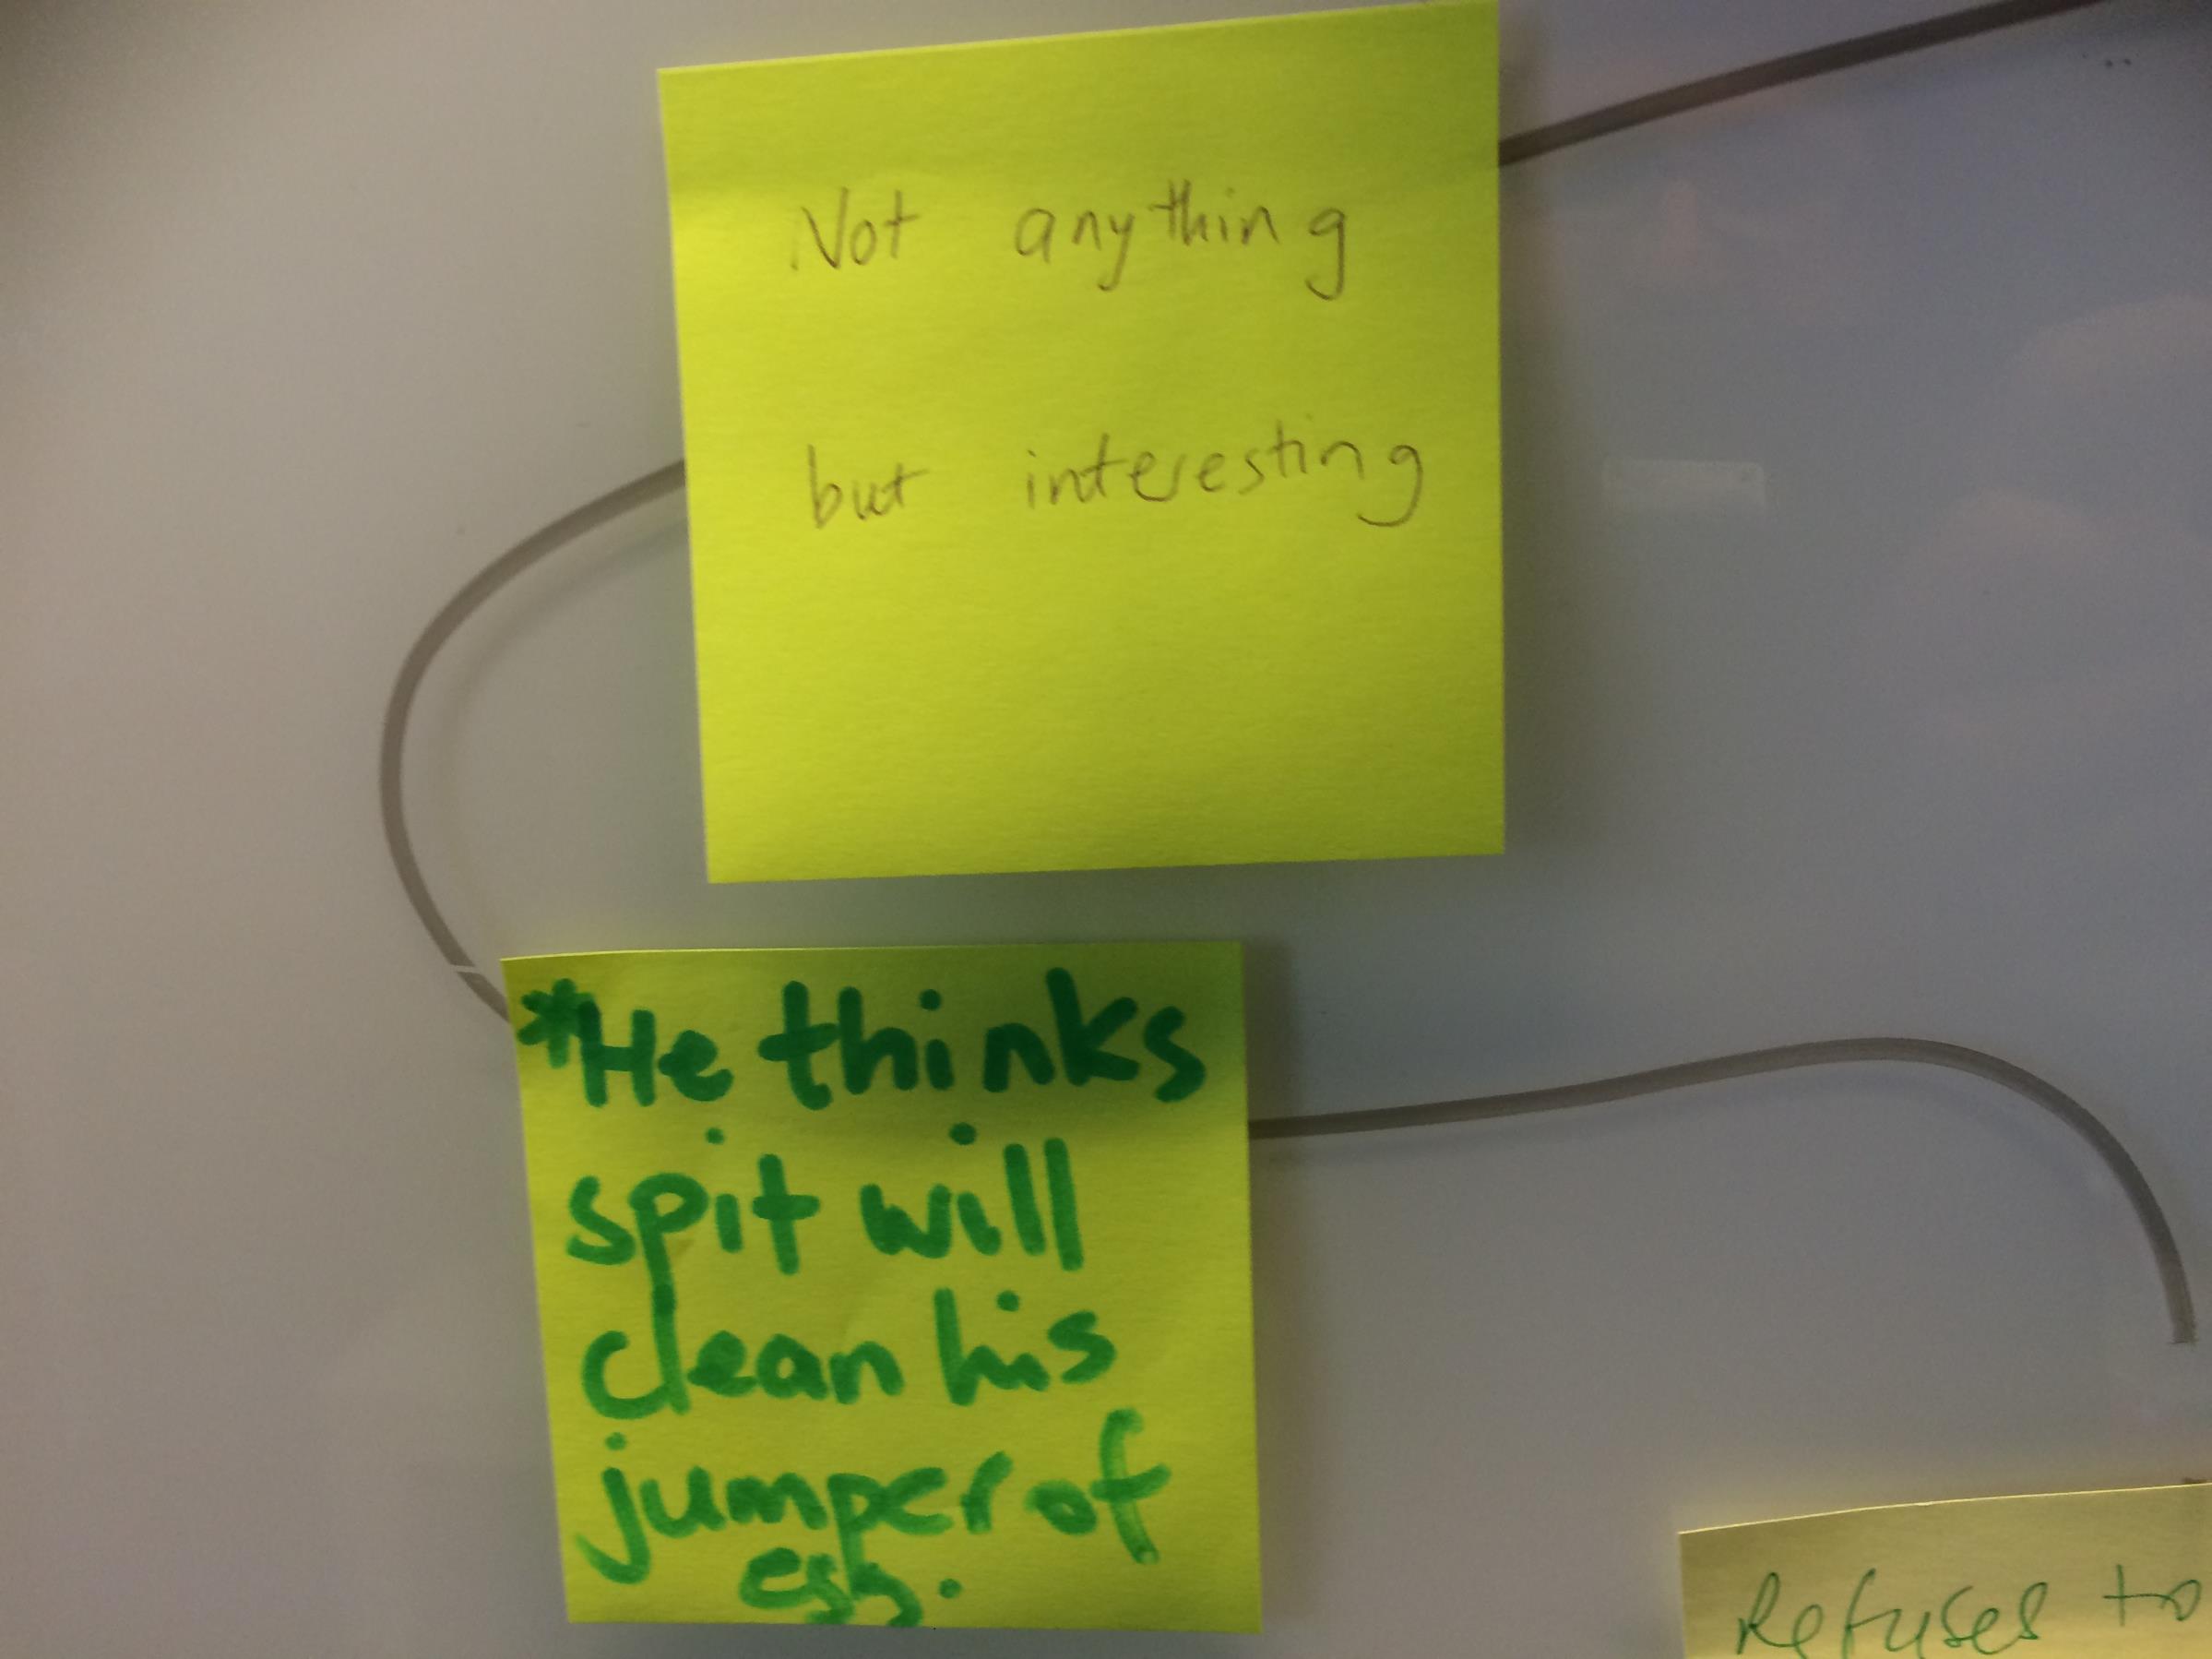 Not anything
but interesting
*He thinks
spit will
clean his
jumper of
egg.
Refuses to